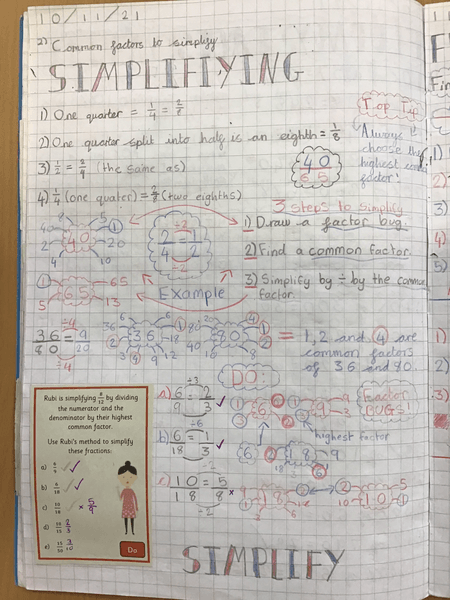 10/11/21
2) Common factors to simplify
SIMPLIFIYING
1) One quarter = 1/4 = 2/8
Top Tip
2) One quarter split into half is an eighth = 1/8
Always
choose the
highest
factor!
40
65
3) (the same as)
4) 1/4 (one quater) = 2/8 (two eighths)
3 steps to simplify
1) Draw a factor bug.
2) Find a common factor.
3) Simplify by ÷ by the common
factor.
40
8 5 1 2 20 4 10
÷2
2/4 = 1/2
÷2
Example
65
1 65 5 13
÷4
36/80 = 9/20
÷4
36
80
= 1, 2 and 4 are
common factors
of 36 and 80.
DO:
Factor
BUGS!
Rubi is simplifying 8/12 by dividing
the numerator and the
denominator by their highest
common factor.
Use Rubi's method to simplify
these fractions:
a) 6/9 ✓
b) 6/18 ✓
c) 10/18 × 5/9
d)
e) 15/50 3/10
Do
÷3
a) 6/9 = 2/3 ✓
÷6
b) 6/18 = 1/3 ✓
÷2
c) 10/18 = 5/8 ×
÷2
highest factor
SIMPLIFY